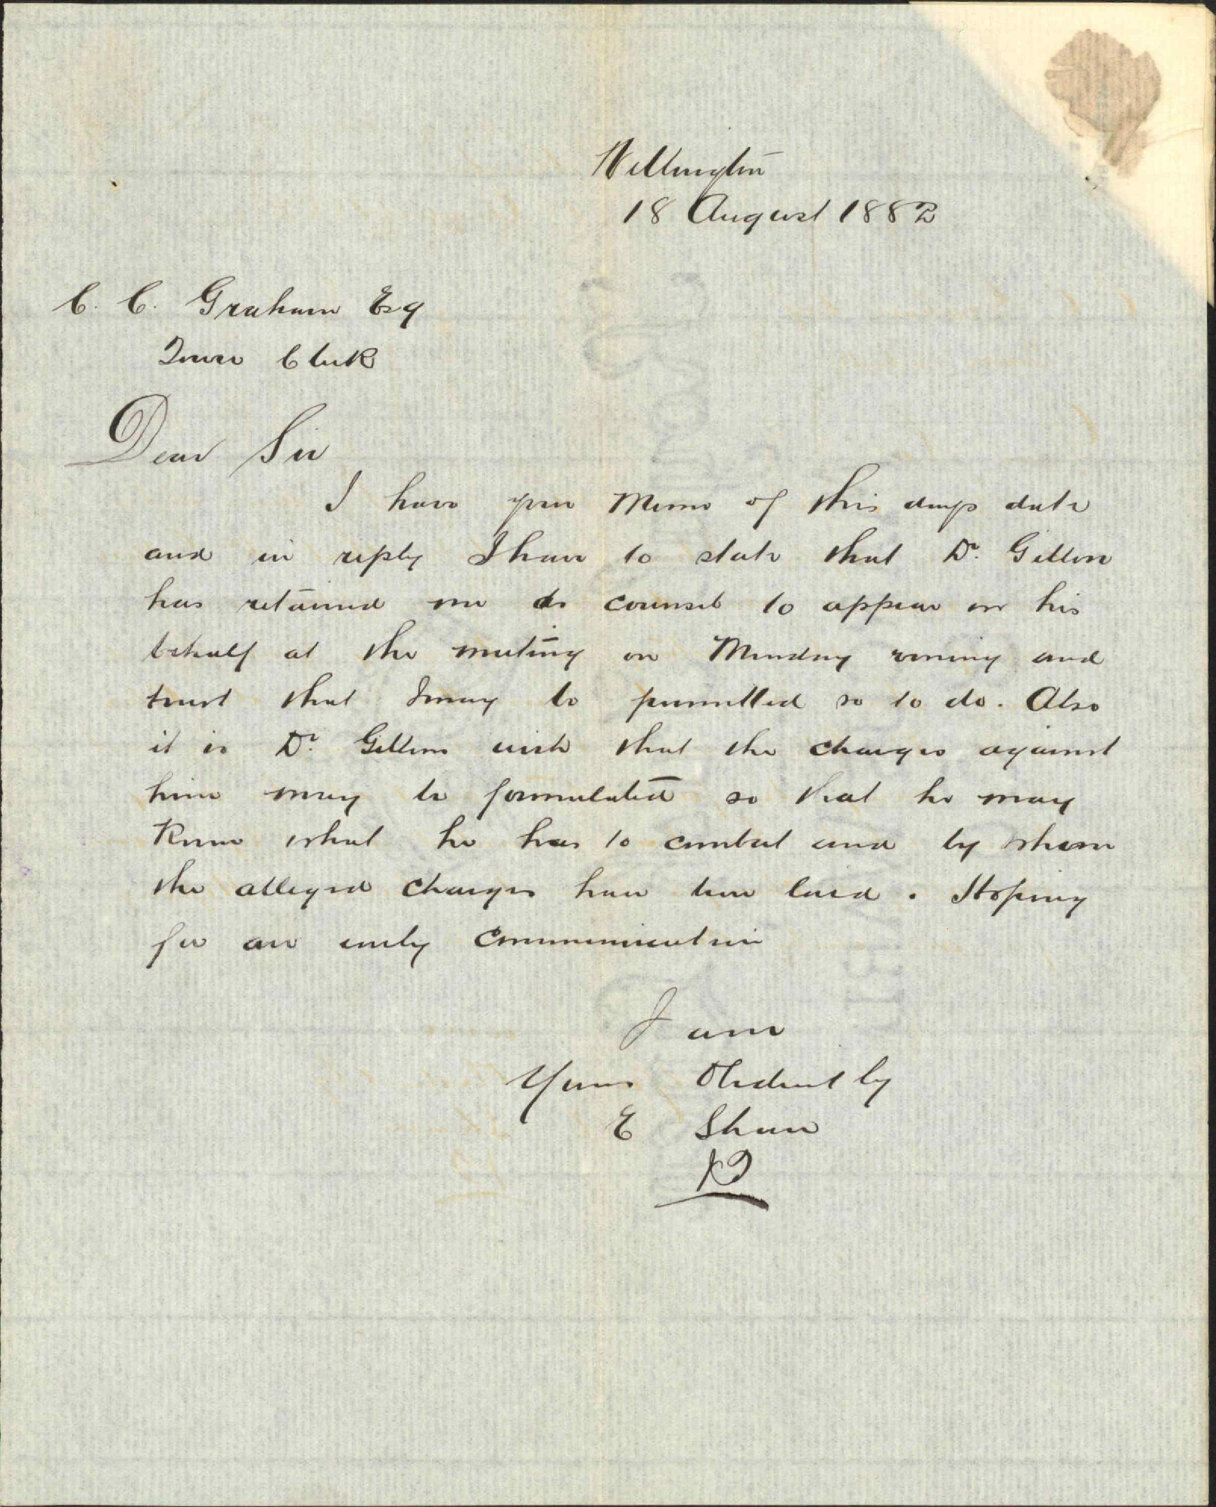 Wellington
18 August 1882
C. C. Graham Esq
Town Clerk
Dear Sir
I have your Memo of this days date
and in reply I have to state that Dr. Gillon
has retained me as counsel to appear on his
behalf at the meeting on Monday evening and
trust that I may be permitted so to do. Also
it is Dr. Gillons wish that the charges against
him may be formulated so that he may
Know what he has to combat and by whom
the alleged charges have been laid. Hoping
for an early communication
I am
Yours Obediently
E Shaw